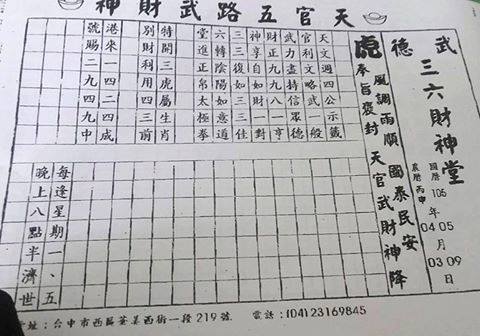 天官五路武財神
武德
三六財神堂
國曆 105年 04 05月 03 09日
農曆丙申
虎
奉旨褒封
風調雨順 國泰民安
天官武財神降
天文週四公示籤
官利文略武一般
武力盡持信眾德
財正九財一對亨
神享自如財
三三復如三三佳
六轉陰陽如意道
堂進正帛太極拳
特開三虎屬生肖
別財利用四三前
港來一四二四成
號賜二九四九中
每逢星期一、五
晚上八點半濟世
址：台中市西區華美西街一段219號 電話：(04)23169845